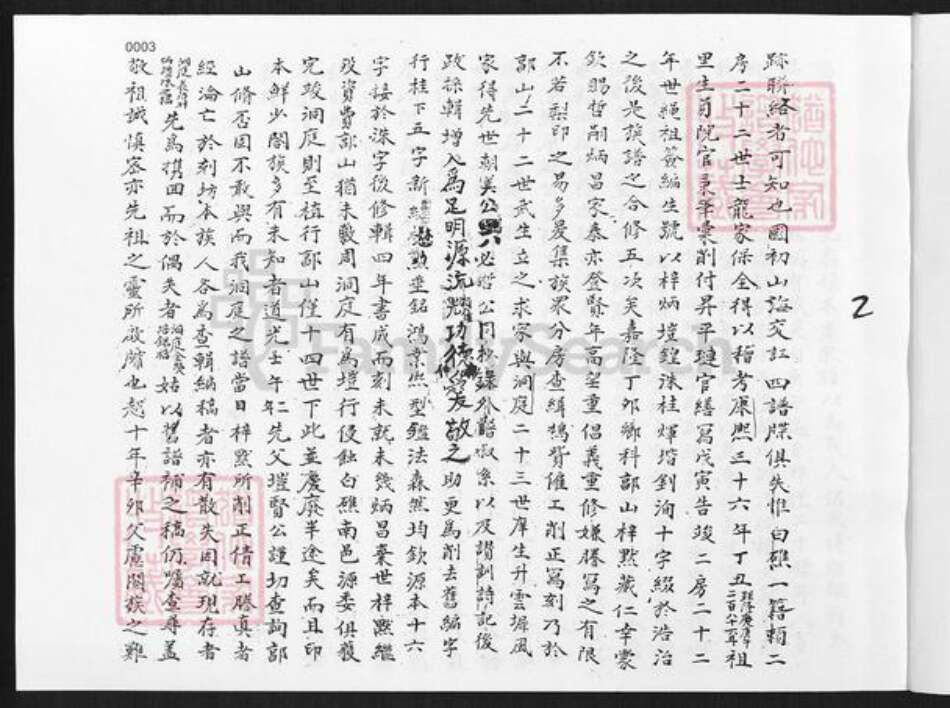 0003
2
跡聯絡者可知也國初山海交訌四譜牒俱失惟白礁一籍賴二
房二十二世士龍家保全得以稽考康熙三十六年丁丑祖
里生員院官秉筆稟削付昇平璉官繕寫戊寅告竣二房二十二
年世絕祖簽編生號以梓炳塏鍠洙桂煇堦釗洵十字綴於浩治
之後是族譜之合修五次矣嘉隆丁卯鄉科部山梓黙藏仁幸蒙
欽賜哲嗣炳昌家泰亦登賢年高望重倡義重修嫌謄寫之有限
不若梨印之易多爰集族眾分房查緝鳩貲僱工削正寫刻乃於
部山二十二世武生立之求家與洞庭二十三世庠生升雲墀風
家得先世朝美公必公同校錄外以及讚訓詩記後
政採輯增入為足明源流功德愛敬之助更為削去舊編字
行桂下五字新垂銘鴻業熙型鑑法森然均欽源本十六
字接於洙字後修輯四年書成而刻未就未幾炳昌棄世梓黙繼
歿資費部山猶未數周洞庭有為塏行侵蝕白礁南邑源委俱獲
完竣洞庭則至植行部山僅十四世下此並廢半途矣而且印
本鮮少閤族多有未知者道光壬午年二先父塏賢公謹切查詢部
山脩否因不敢與而我洞庭之譜當日梓黙所削正倩工謄真者
經淪亡於刻坊本族人各為查輯納稿者亦有散失因就現存者
先為攜回而於偶失者姑以舊譜補之稿仍囑查尋蓋
敬祖誠慎密亦先祖之靈所啟牖也越十年辛卯父慮閤族之難
FamilySearch